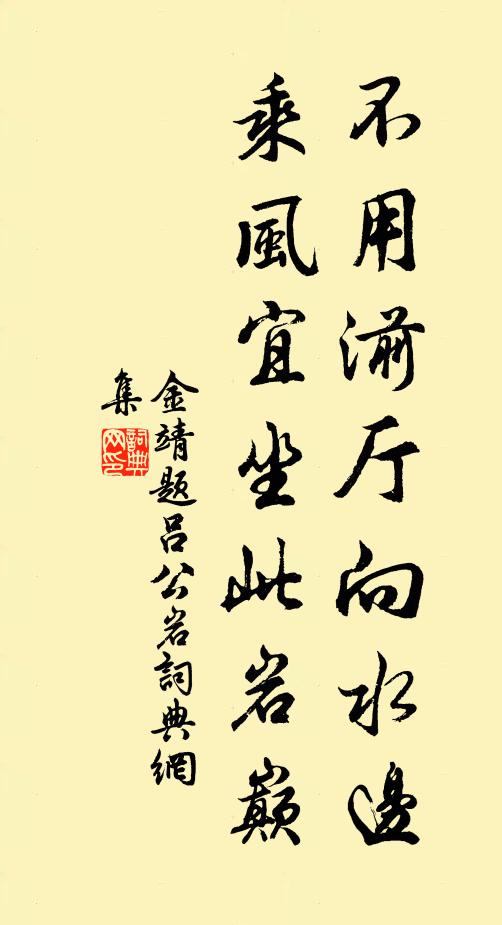 不用湔厅向水邊
乘風宜坐此岩巔
金靖题吕公岩詞典網
集
詞典網印